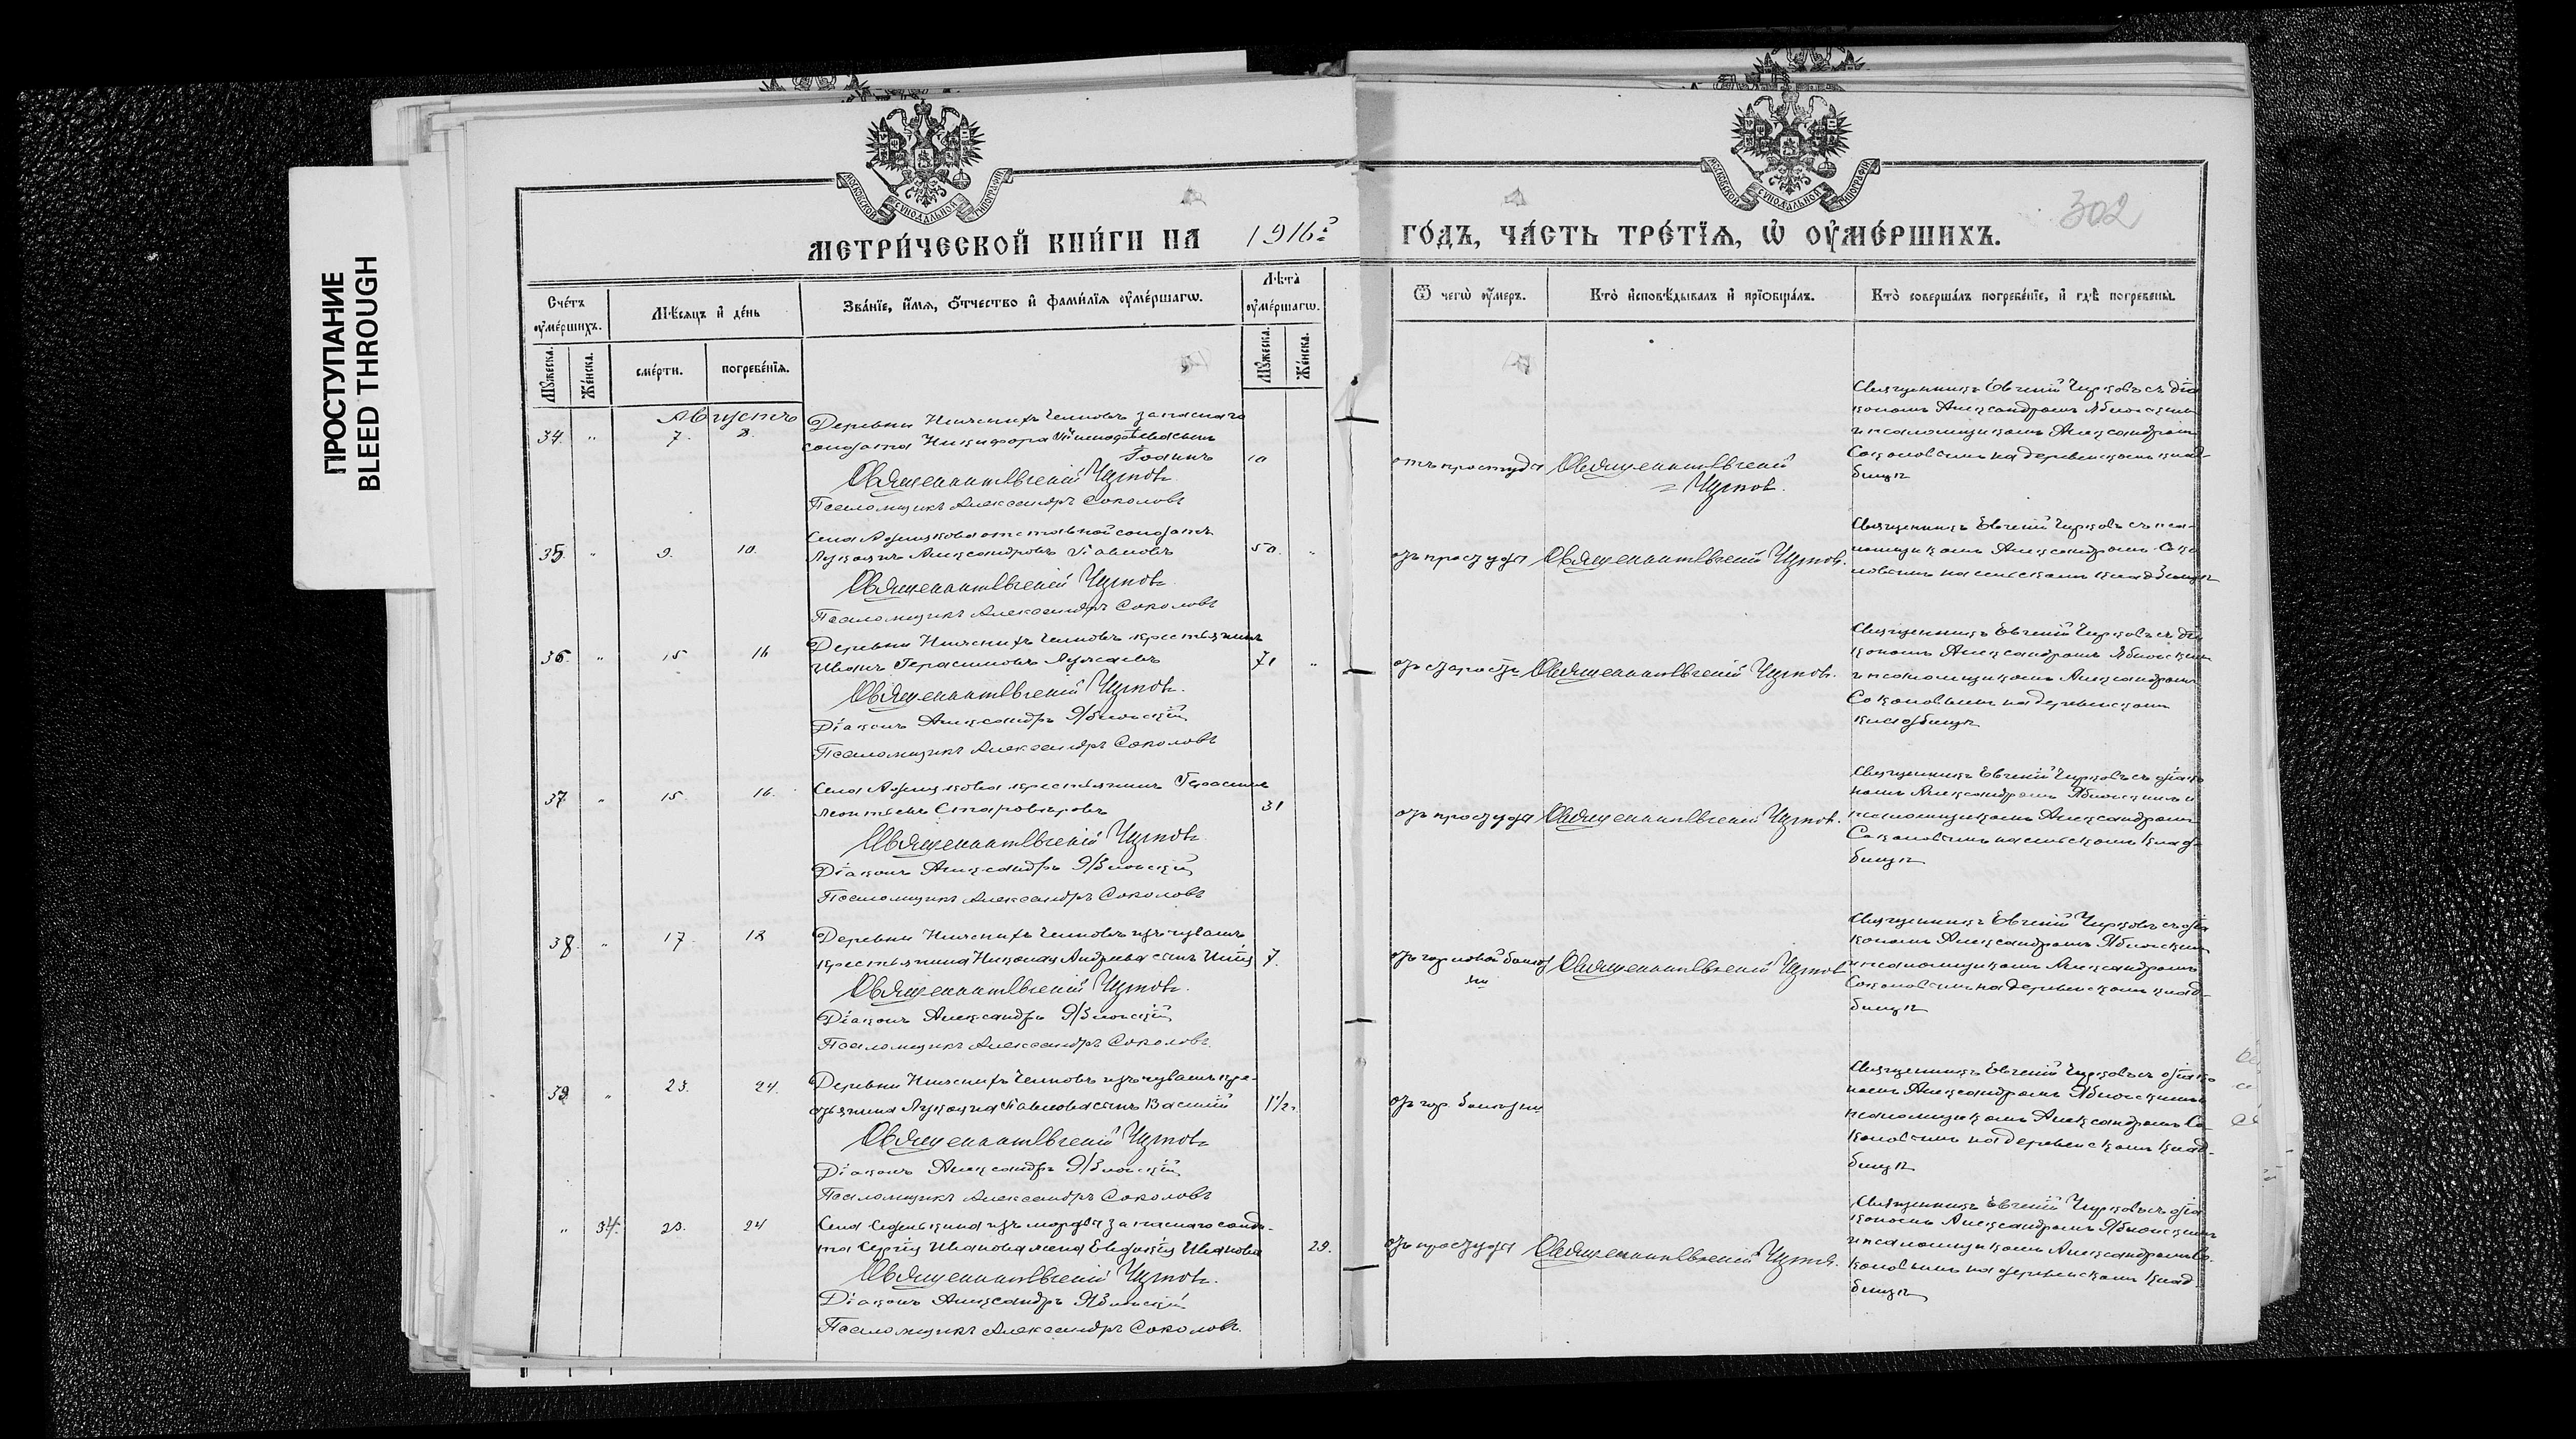 ПРОСТУПАНИЕ
BLEED THROUGH
МОСКОВСКОЙ СѴНОДАЛЬНОЙ ТИПОГРАФІИ
МОСКОВСКОЙ СѴНОДАЛЬНОЙ ТИПОГРАФІИ
302
МЕТРИ́ЧЕСКОЙ КНИ́ГИ НА 1916 ГО́ДЪ, ЧА́СТЬ ТРЕ́ТЇѦ, Ѡ҆ ОУ҆МЕ́РШИХЪ.
Сче́тъ оу҆ме́ршихъ.
Мꙋ́жеска.
Же́нска.
Мѣ́сяцъ и҆ де́нь
сме́рти.
погребе́нїѧ.
Зва́нїе, и҆́мѧ, ѻ҆́тчество и҆ фами́лїѧ оу҆ме́ршагѡ.
Лѣ́та оу҆ме́ршагѡ.
Мꙋ́жеска.
Же́нска.
Ѿ чегѡ̀ оу҆́меръ.
Кто̀ и҆сповѣ́дывалъ и҆ прїѡбща́лъ.
Кто̀ соверша́лъ погребе́нїе, и҆ гдѣ̀ погребены̀.
Августъ
34. " 7. 8.
Деревни Челновъ запаснаго
солдата Никифора сынъ
Іоаннъ 10
Священникъ Евгеній
Псаломщикъ Александръ Соколовъ
отъ простуды Священникъ Евгеній
Священникъ Евгеній съ діа
кономъ Александромъ Яблонскимъ
и псаломщикомъ Александромъ
Соколовымъ на деревенскомъ клад-
бищѣ
35. " 9. 10.
Села отставной солдатъ
Александровъ Павловъ 50. "
Священникъ Евгеній
Псаломщикъ Александръ Соколовъ
отъ простуды Священникъ Евгеній
Священникъ Евгеній съ пса-
ломщикомъ Александромъ Соко
ловымъ на сельскомъ кладбищѣ
36. " 15 16
Деревни Челновъ крестьянинъ
Иванъ Герасимовъ 71 "
Священникъ Евгеній
Діаконъ Александръ Яблонскій
Псаломщикъ Александръ Соколовъ
отъ старости Священникъ Евгеній
Священникъ Евгеній съ діа
кономъ Александромъ Яблонскимъ
и псаломщикомъ Александромъ
Соколовымъ на деревенскомъ
кладбищѣ
37. " 15. 16.
Села крестьянинъ Герасимъ
Леонтьевъ Старовѣровъ 31
Священникъ Евгеній
Діаконъ Александръ Яблонскій
Псаломщикъ Александръ Соколовъ
отъ простуды Священникъ Евгеній
Священникъ Евгеній съ діако
номъ Александромъ Яблонскимъ и
псаломщикомъ Александромъ
Соколовымъ на сельскомъ клад-
бищѣ
38. " 17. 18
Деревни Челновъ изъ чувашъ
крестьянина Николая Андреева сынъ 7.
Священникъ Евгеній
Діаконъ Александръ Яблонскій
Псаломщикъ Александръ Соколовъ
отъ горловой болѣз
ни
Священникъ Евгеній
Священникъ Евгеній съ діа
кономъ Александромъ Яблонскимъ
и псаломщикомъ Александромъ
Соколовымъ на деревенскомъ клад-
бищѣ
39. " 23. 24.
Деревни Челновъ изъ чувашъ кре-
стьянина Павлова сынъ Василій 1 1/2 г.
Священникъ Евгеній
Діаконъ Александръ Яблонскій
Псаломщикъ Александръ Соколовъ
отъ гор. болѣзни
Священникъ Евгеній съ діако
номъ Александромъ Яблонскимъ и
псаломщикомъ Александромъ Со
коловымъ на деревенскомъ клад-
бищѣ
" 34. 23. 24
Села изъ мордвы запаснаго солда-
та Сергія Иванова жена Евдокія Иванова 29.
Священникъ Евгеній
Діаконъ Александръ Яблонскій
Псаломщикъ Александръ Соколовъ.
отъ простуды Священникъ Евгеній
Священникъ Евгеній съ діа
кономъ Александромъ Яблонскимъ
и псаломщикомъ Александромъ Со
коловымъ на деревенскомъ клад-
бищѣ